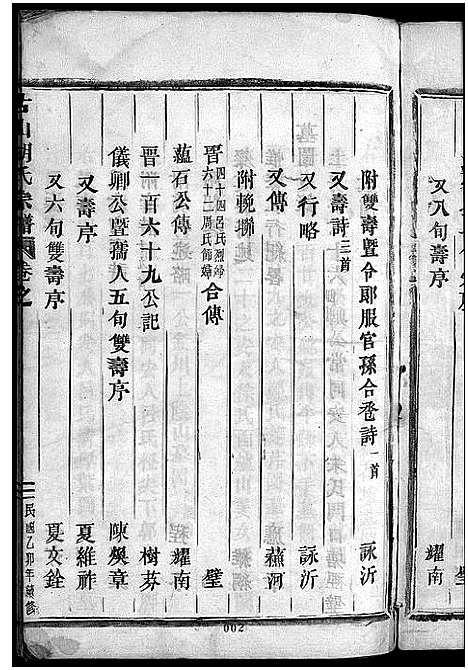 又八句壽序
耀南
附雙壽暨令郎服官孫合卺詩一首
詠沂
又壽詩三首
又行略
詠沂
又傳
蘓河
附輓聯
晋四十四呂氏烈婦六十二周氏節婦合傳
璧
蘊石公傳
耀南
晋一百六十九公記
樹芬
儀卿公暨孺人五旬雙壽序
陳奠章
又壽序
夏維祚
又六旬雙壽序
夏文銓
山胡氏宗譜
卷之
民國乙卯年續修
002